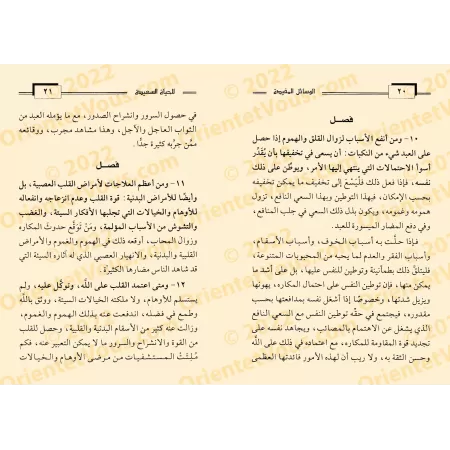 ٢٠
الوسائل المفيدة
فصــل
١٠- ومن أنفع الأسباب لزوال القلق والهموم إذا حصل
على العبد شيء من النكبات: أن يسعى في تخفيفها بأن يُقَدِّر
أسوأ الاحتمالات التي ينتهي إليها الأمر، ويوطِّن على ذلك
نفسه، فإذا فعل ذلك فلْيَسْعَ إلى تخفيف ما يمكن تخفيفه
بحسب الإمكان، فبهذا التوطين وبهذا السعي النافع، تزول
همومه وغمومه، ويكون بدل ذلك السعي في جلب المنافع،
وفي دفع المضار الميسورة للعبد.
فإذا حلَّت به أسباب الخوف، وأسباب الأسقام،
وأسباب الفقر والعدم لما يحبه من المحبوبات المتنوعة،
فليتلقَّ ذلك بطمأنينة وتوطين للنفس عليها، بل على أشد ما
يمكن منها، فإن توطين النفس على احتمال المكاره، يهونها
ويزيل شدتها، وخصوصًا إذا أشغل نفسه بمدافعتها بحسب
مقدوره، فيجتمع في حقِّه توطين النفس مع السعي النافع
الذي يشغل عن الاهتمام بالمصائب، ويجاهد نفسه على
تجديد قوة المقاومة للمكاره، مع اعتماده في ذلك على اللَّه
وحسن الثقة به، ولا ريب أن لهذه الأمور فائدتها العظمى
للحياة السعيدة
٢١
في حصول السرور وانشراح الصدور، مع ما يؤمله العبد من
الثواب العاجل والآجل، وهذا مشاهد مجرب، ووقائعه
ممَّن جرَّبه كثيرة جدًّا.
فصــل
١١- ومن أعظم العلاجات لأمراض القلب العصبية، بل
وأيضًا للأمراض البدنية: قوة القلب وعدم انزعاجه وانفعاله
للأوهام والخيالات التي تجلبها الأفكار السيئة. والغضب
والتشوش من الأسباب المؤلمة، ومَنْ تَوَقَّع حدوث المكاره
وزوال المحاب، أوقعه ذلك في الهموم والغموم والأمراض
القلبية والبدنية، والانهيار العصبي الذي له آثاره السيئة التي
قد شاهد الناس مضارها الكثيرة.
١٢- ومتى اعتمد القلب على اللَّه، وتوكَّل عليه، ولم
يستسلم للأوهام، ولا ملكته الخيالات السيئة، ووثق باللَّه
وطمع في فضله، اندفعت عنه بذلك الهموم والغموم،
وزالت عنه كثير من الأسقام البدنية والقلبية، وحصل للقلب
من القوة والانشراح والسرور ما لا يمكن التعبير عنه، فكم
مُلِئَتْ المستشفيات من مرضى الأوهام والخيالات
© 2022
OrienteVer.com